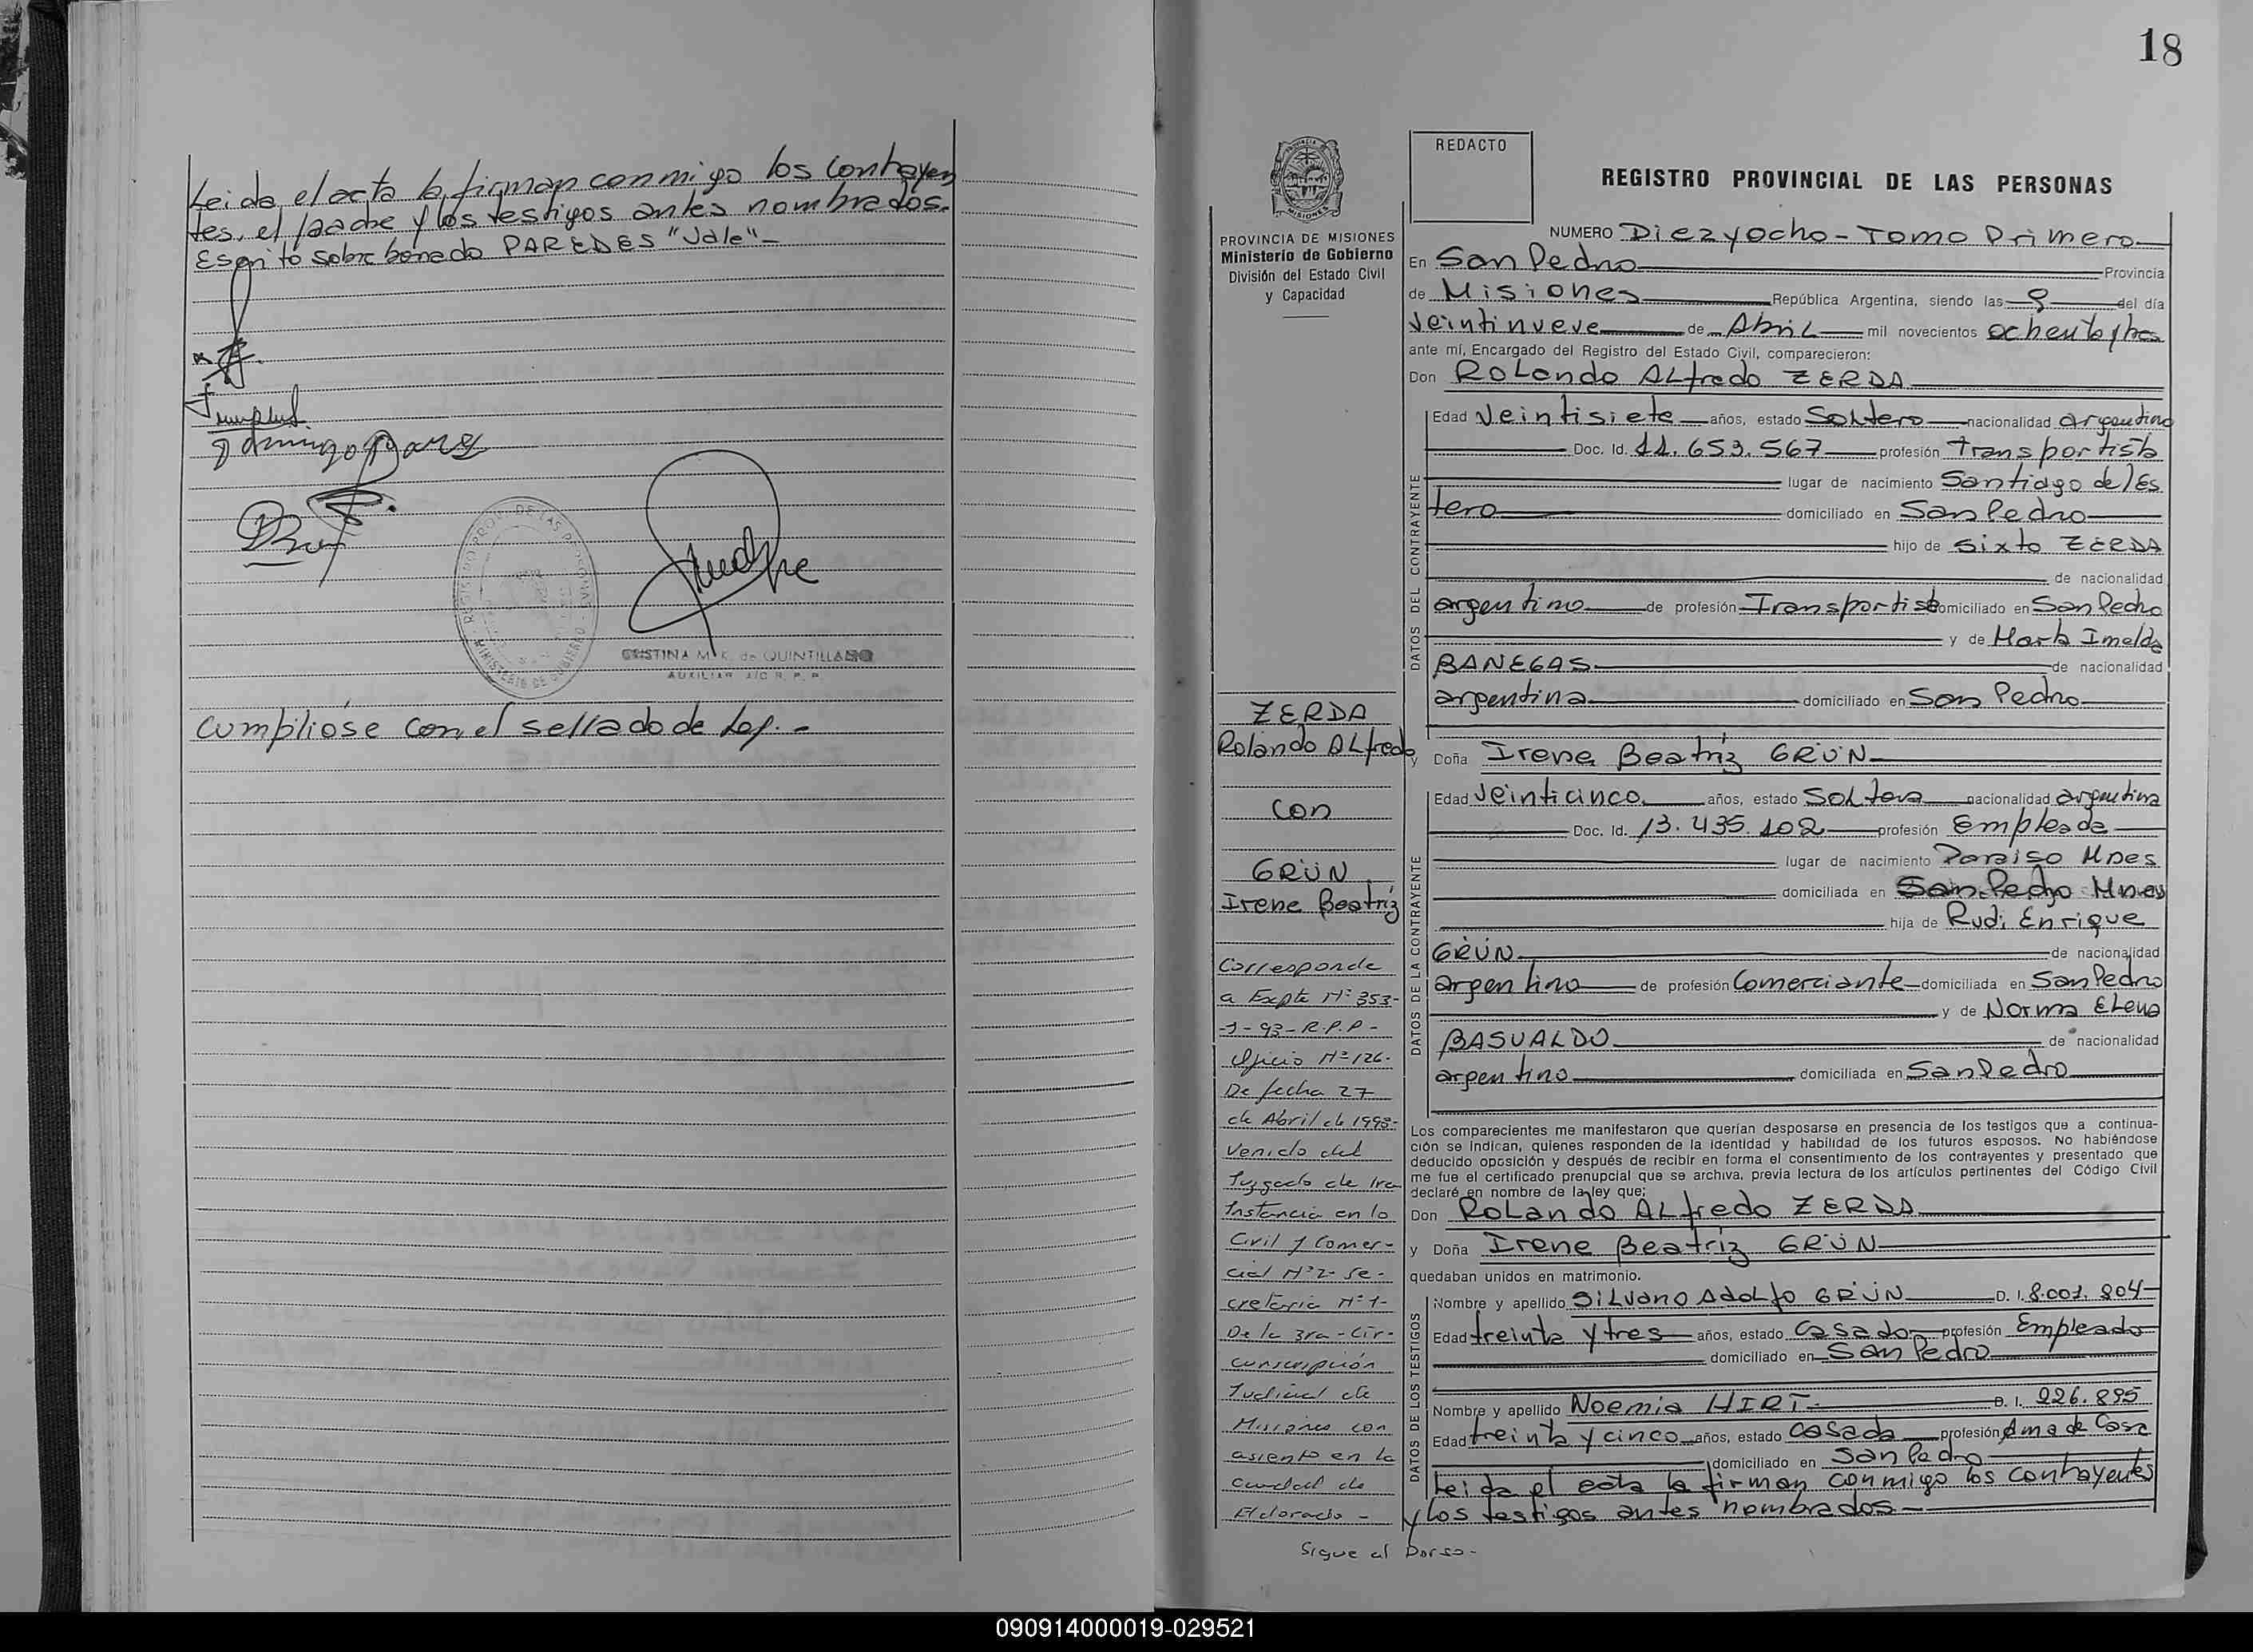 Leida el acta la firman conmigo los contrayen
tes, el padre y los testigos antes nombrados.
Escrito sobre borrado PAREDES "Vale"-
Domingo
REGISTRO PROV. DE LAS PERSONAS
MINISTERIO DE GOBIERNO
CRISTINA M. K. de QUINTILLANO
AUXILIAR A/C R. P. P.
Cumplióse con el sellado de Ley.-
18
REDACTO
PROVINCIA DE
MISIONES
REGISTRO PROVINCIAL DE LAS PERSONAS
PROVINCIA DE MISIONES
Ministerio de Gobierno
División del Estado Civil
y Capacidad
NUMERO Diezyocho - Tomo Primero
En San Pedro Provincia
de Misiones República Argentina, siendo las 9 del día
Veintinueve de Abril mil novecientos ochenta y tres
ante mí, Encargado del Registro del Estado Civil, comparecieron:
Don ROLando ALfredo ZERDA
DATOS DEL CONTRAYENTE
Edad Veintisiete años, estado Soltero nacionalidad argentino
Doc. Id. 11.653.567 profesión Transportista
lugar de nacimiento Santiago del Es
tero domiciliado en San Pedro
hijo de Sixto ZERDA
de nacionalidad
argentino de profesión Transportista domiciliado en San Pedro
y de Marta Imelda
BANEGAS de nacionalidad
argentina domiciliado en San Pedro
y Doña Irene Beatriz GRÜN
DATOS DE LA CONTRAYENTE
Edad Veinticinco años, estado Soltera nacionalidad argentina
Doc. Id. 13.435.102 profesión Empleada
lugar de nacimiento Paraiso Mnes
domiciliada en San Pedro Mnes
hija de Rudi Enrique
GRÜN de nacionalidad
argentino de profesión Comerciante domiciliada en San Pedro
y de Norma ELena
BASUALDO de nacionalidad
argentina domiciliada en San Pedro
Los comparecientes me manifestaron que querían desposarse en presencia de los testigos que a continua-
ción se indican, quienes responden de la identidad y habilidad de los futuros esposos. No habiéndose
deducido oposición y después de recibir en forma el consentimiento de los contrayentes y presentado que
me fue el certificado prenupcial que se archiva, previa lectura de los artículos pertinentes del Código Civil
declaré en nombre de la ley que:
Don ROLando ALfredo ZERDA
y Doña Irene Beatriz GRÜN
quedaban unidos en matrimonio.
DATOS DE LOS TESTIGOS
Nombre y apellido SiLvano AdoLfo GRÜN D. I. 8.001.804
Edad treinta y tres años, estado Casado profesión Empleado
domiciliado en San Pedro
Nombre y apellido Noemia HIRT D. I. 226.895
Edad treinta y cinco años, estado casada profesión Ama de Casa
domiciliado en San Pedro
Leida el acta la firman conmigo los contrayentes
y los testigos antes nombrados -
ZERDA
Rolando ALfredo
con
GRÜN
Irene Beatriz
Corresponde
a Expte Nº 353-
-J-93-R.P.P-
Oficio Nº 126-
De fecha 27
de Abril de 1993-
Venido del
Juzgado de 1ra
Instancia en lo
Civil y Comer-
cial Nº 2- Se-
cretaria Nº 1-
De la 3ra - Cir-
cunscripción
Judicial de
Misiones con
asiento en la
ciudad de
Eldorado -
Sigue al Dorso-
090914000019-029521